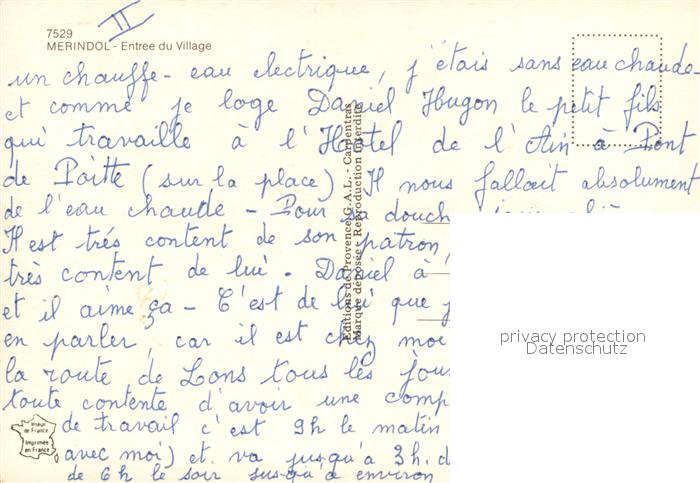 7529
MERINDOL - Entree du Village
II
un chauffe-eau electrique, j'étais sans eau chaude
et comme je loge Daniel Hugon le petit fils
qui travaille à l'Hôtel de l'Ain à Pont
de Poitte (sur la place) Il nous fallait absolument
de l'eau chaude - Pour sa douch
Il est très content de son patron,
très content de lui. Daniel à
et il aime ça - C'est de lui que j
en parler, car il est chez moi
la route de Lons tous les jou
toute contente d'avoir une comp
de travail c'est 9h le matin
avec moi) et va jusqu'à 3h. d
de 6h le soir jusqu'à environ
Editions de Provence G.A.L. - Carpentras
Marque déposée - Reproduction Interdite
Image
de France
Imprimée
en France
privacy protection
Datenschutz